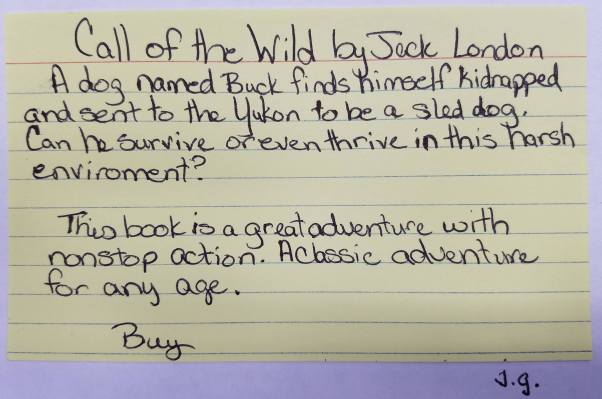 Call of the Wild by Jack London
A dog named Buck finds himself kidnapped
and sent to the Yukon to be a sled dog.
Can he survive or even thrive in this harsh
enviroment?
This book is a great adventure with
nonstop action. A classic adventure
for any age.
Buy
J.g.